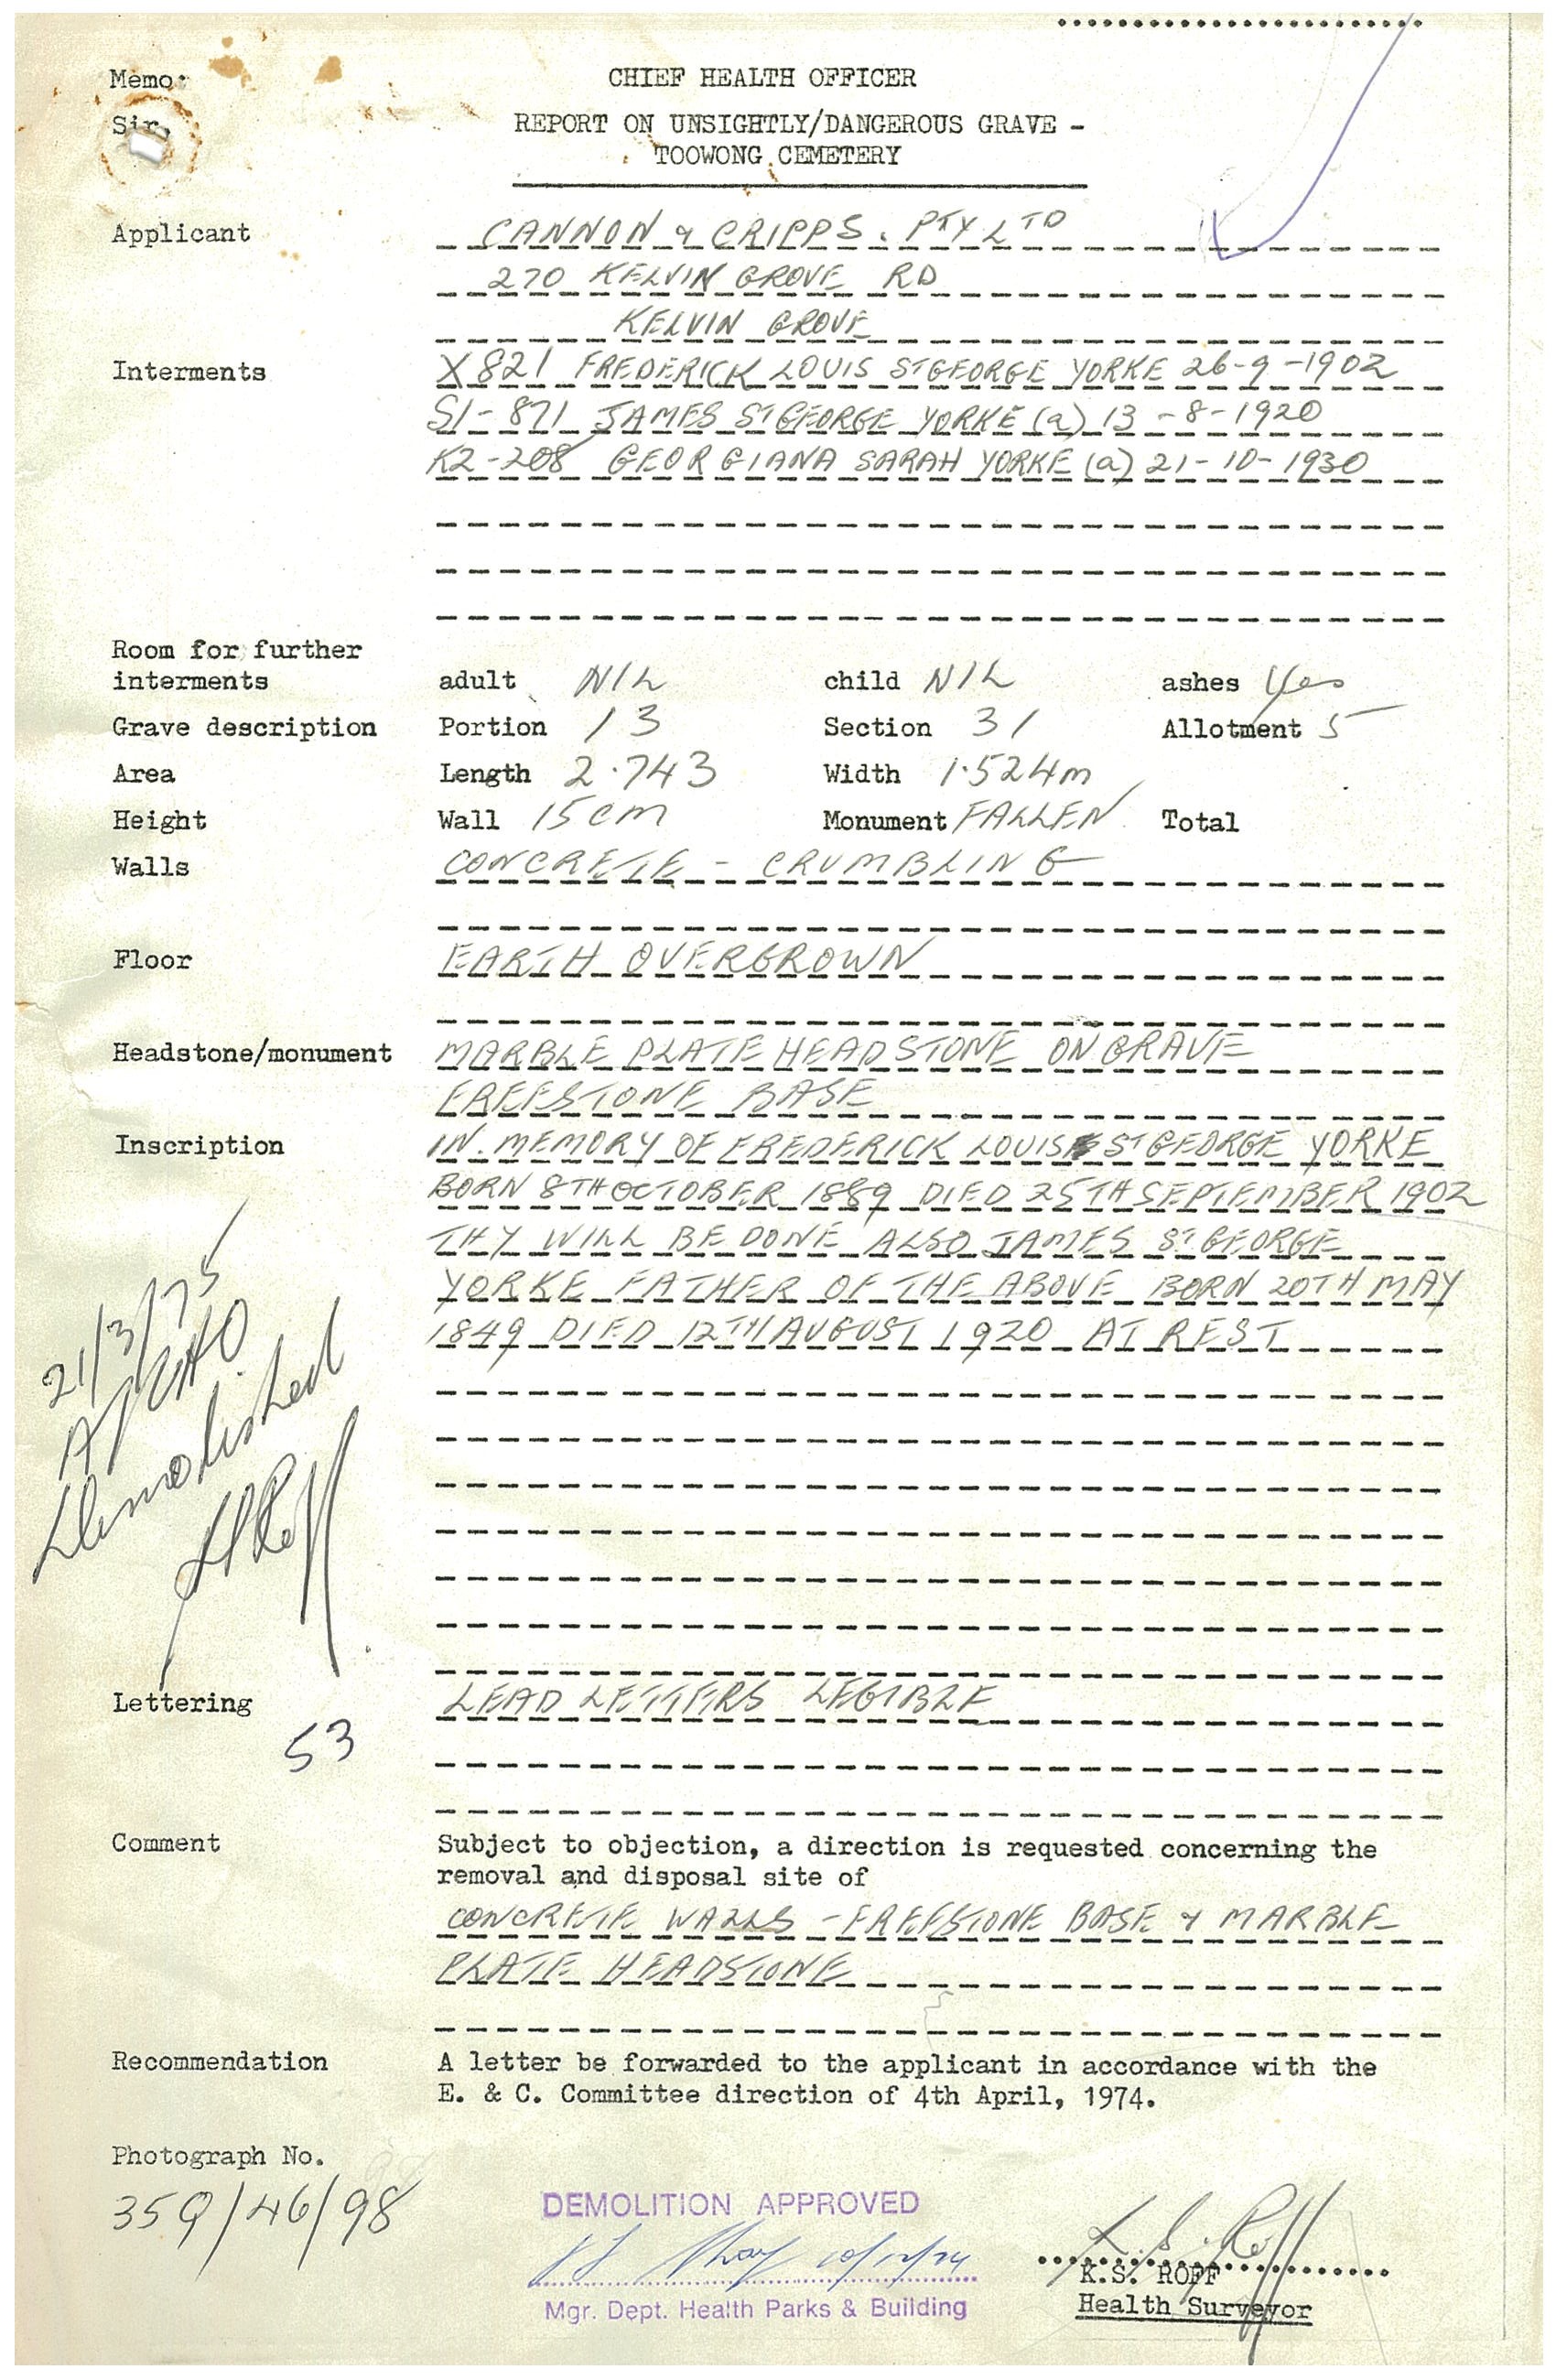 Memo:
CHIEF HEALTH OFFICER
Sir,
REPORT ON UNSIGHTLY/DANGEROUS GRAVE -
TOOWONG CEMETERY
Applicant CANNON & CRIPPS. PTY LTD
270 KELVIN GROVE RD
KELVIN GROVE
Interments X821 FREDERICK LOUIS ST GEORGE YORKE 26-9-1902
S1-871 JAMES ST GEORGE YORKE (a) 13-8-1920
K2-208 GEORGIANA SARAH YORKE (a) 21-10-1930
Room for further
interments adult NIL child NIL ashes Yes
Grave description Portion 13 Section 31 Allotment 5
Area Length 2.743 Width 1.524m
Height Wall 15cm Monument FALLEN Total
Walls CONCRETE - CRUMBLING
Floor EARTH OVERGROWN
Headstone/monument MARBLE PLATE HEADSTONE ON GRAVE
FREESTONE BASE
Inscription IN. MEMORY OF FREDERICK LOUIS ST GEORGE YORKE
BORN 8TH OCTOBER 1889 DIED 25TH SEPTEMBER 1902
THY WILL BE DONE ALSO JAMES ST GEORGE
YORKE FATHER OF THE ABOVE BORN 20TH MAY
1849 DIED 12TH AUGUST 1920 AT REST
21/3/75
A/CHO
Demolished
KSRoff
Lettering LEAD LETTERS LEGIBLE
53
Comment Subject to objection, a direction is requested concerning the
removal and disposal site of
CONCRETE WALLS - FREESTONE BASE & MARBLE
PLATE HEADSTONE
Recommendation A letter be forwarded to the applicant in accordance with the
E. & C. Committee direction of 4th April, 1974.
Photograph No.
35Q/46/98
DEMOLITION APPROVED
10/12/74
Mgr. Dept. Health Parks & Building
K.S. Roff
K.S. ROFF
Health Surveyor